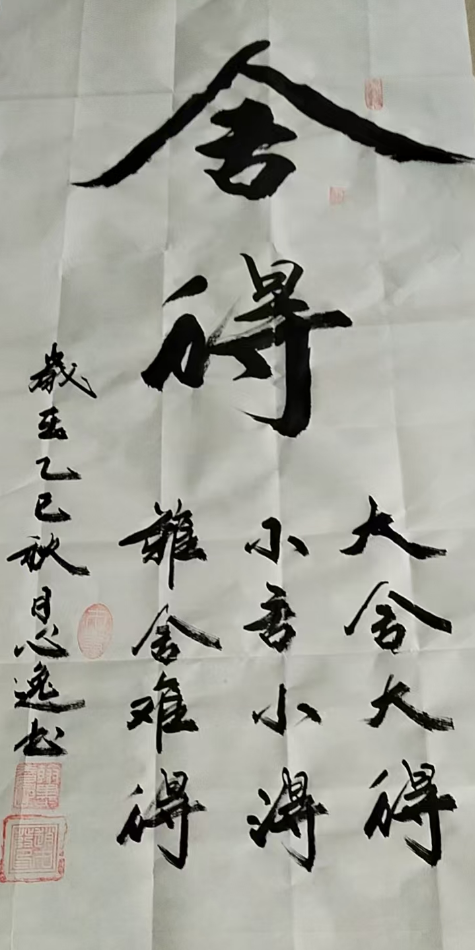 舍得
大舍大得
小舍小得
難舍难得
歲在乙巳秋月心逸书